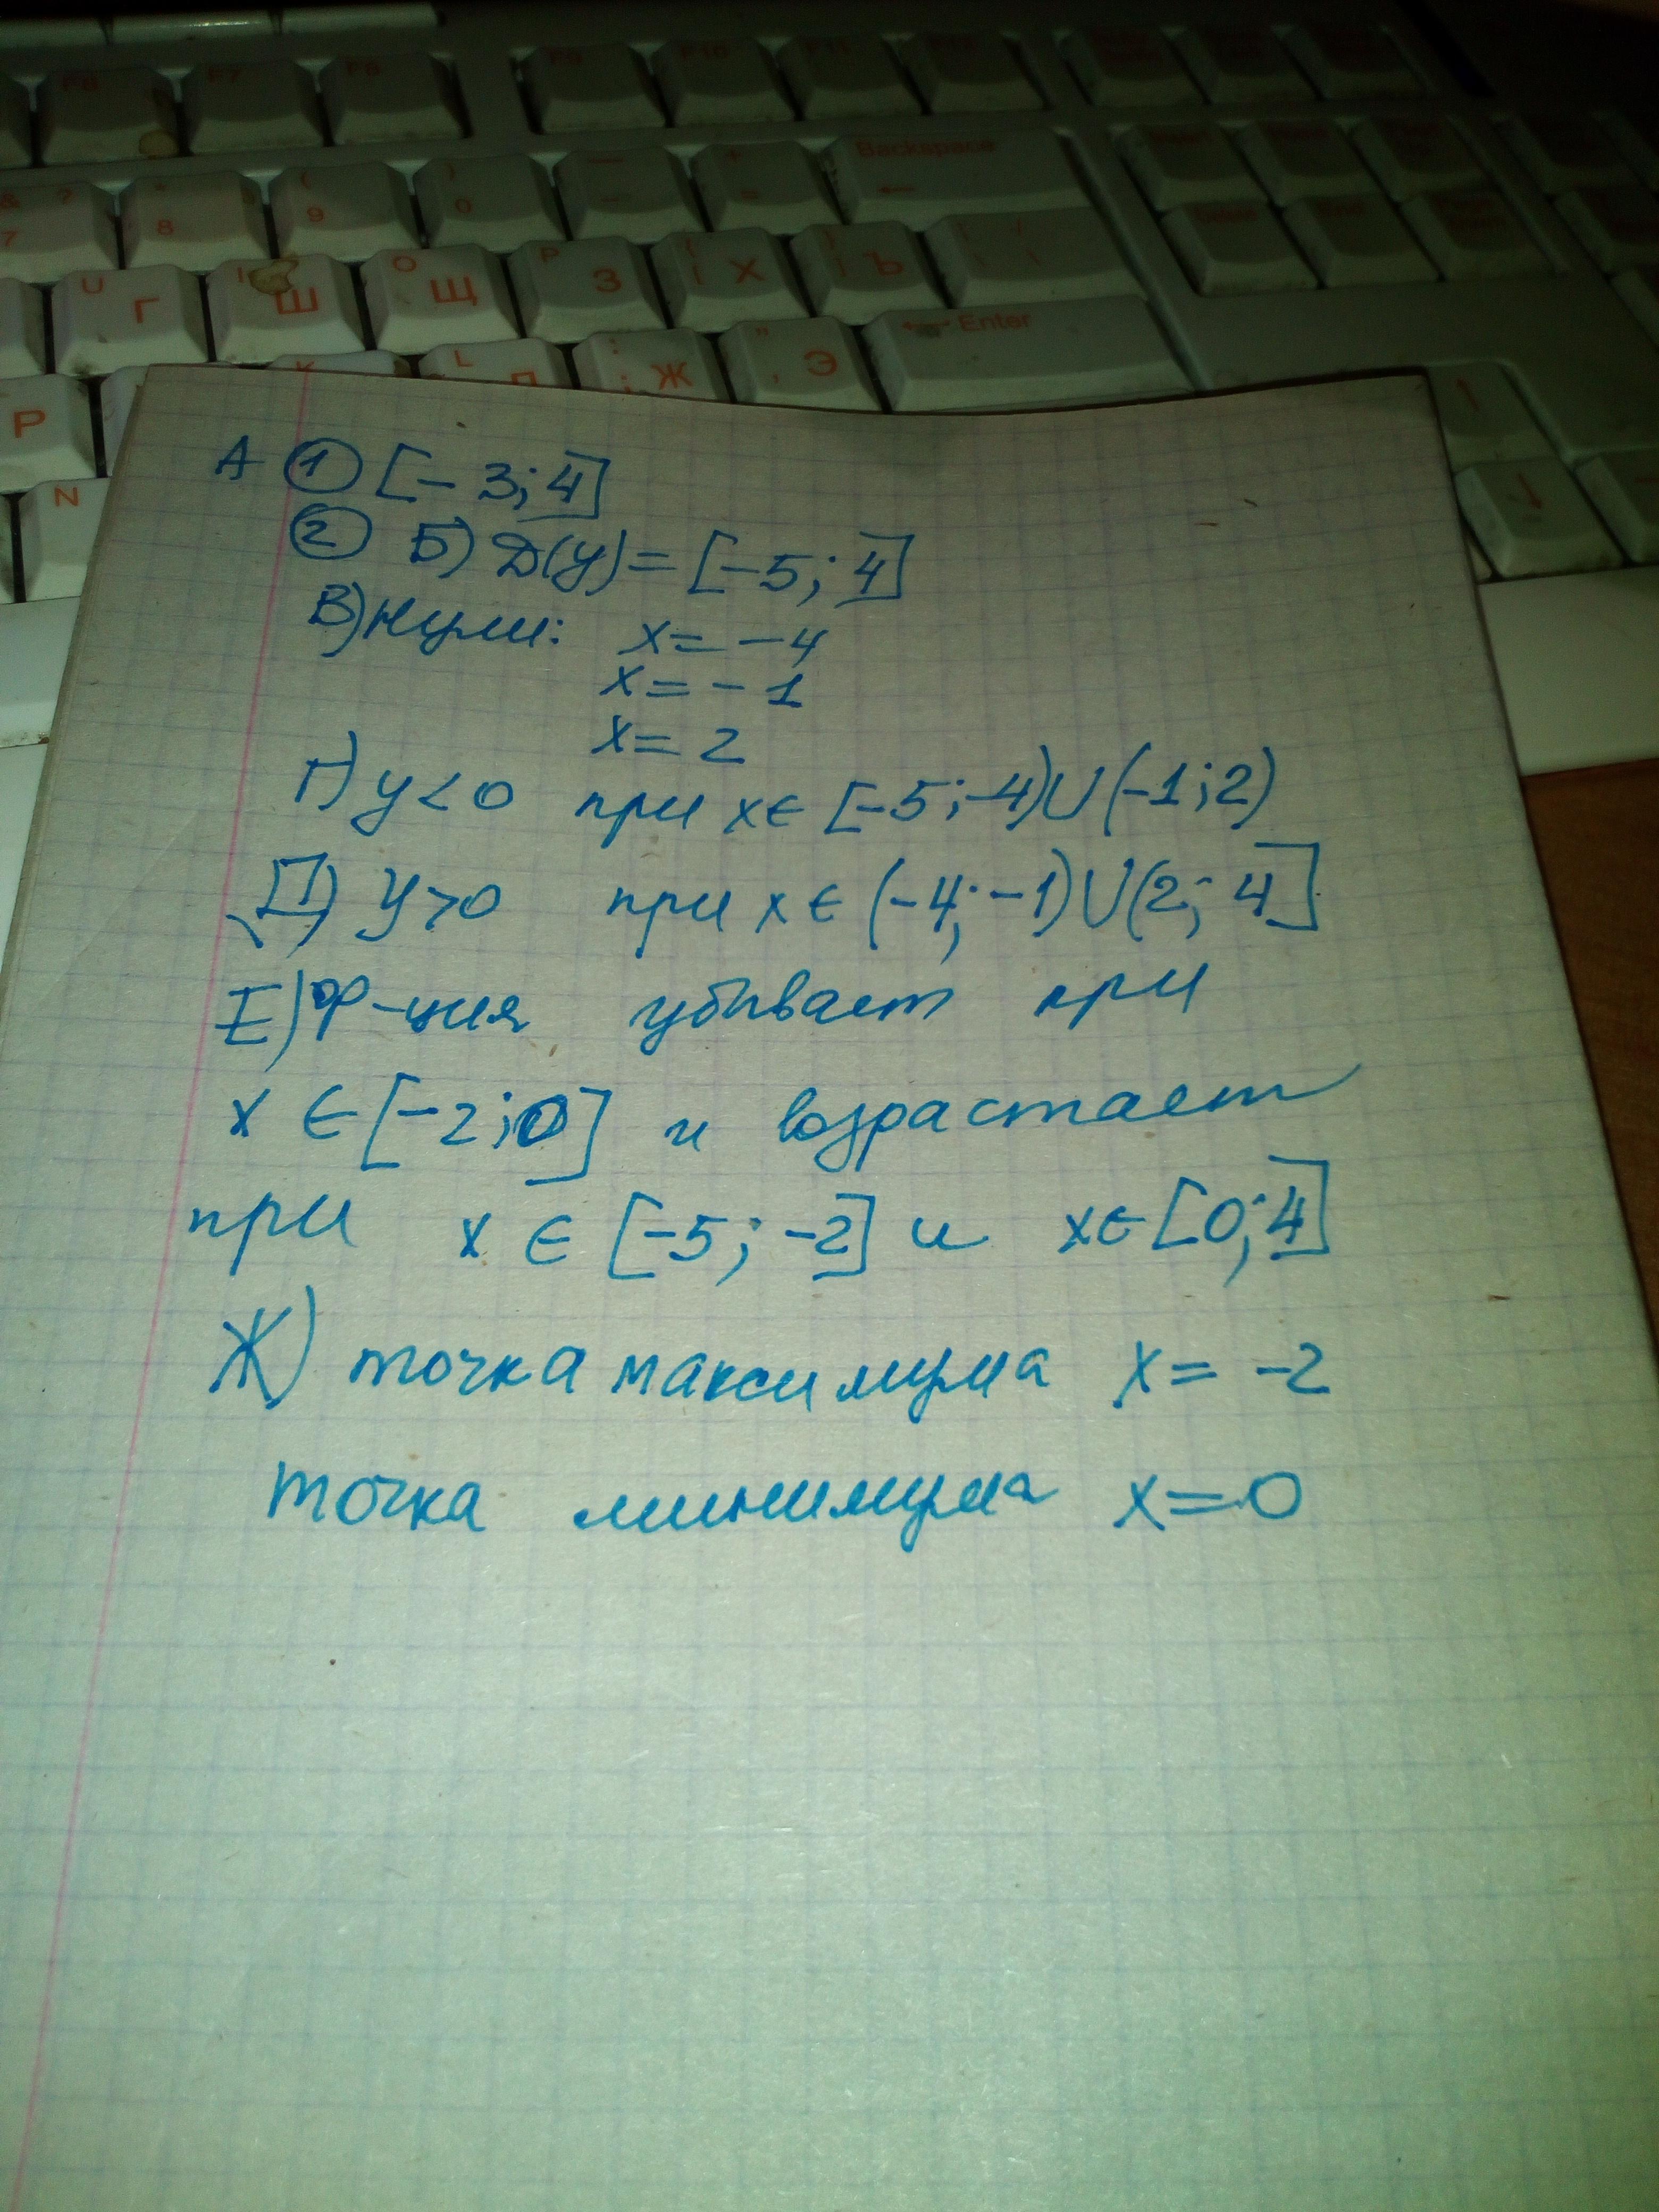 F6 F7 F8 F9 F10 F11
& 7 ? * 8 ( 9 ) 0 — - + = Backspace
U Г I Ш O Щ P З { [ Х } ] Ъ | \ /
Р K L : ; Ж " ' Э Enter
N
А ① [- 3; 4]
② Б) Д(y) = [-5; 4]
В) нули: x = -4
x = -1
x = 2
Г) y < 0 при x ∈ [-5; -4) U (-1; 2)
Д) y > 0 при x ∈ (-4; -1) U (2; 4]
Е) ф-ция убывает при
x ∈ [-2; 0] и возрастает
при x ∈ [-5; -2] и x ∈ [0; 4]
Ж) точка максимума x = -2
точка минимума x = 0